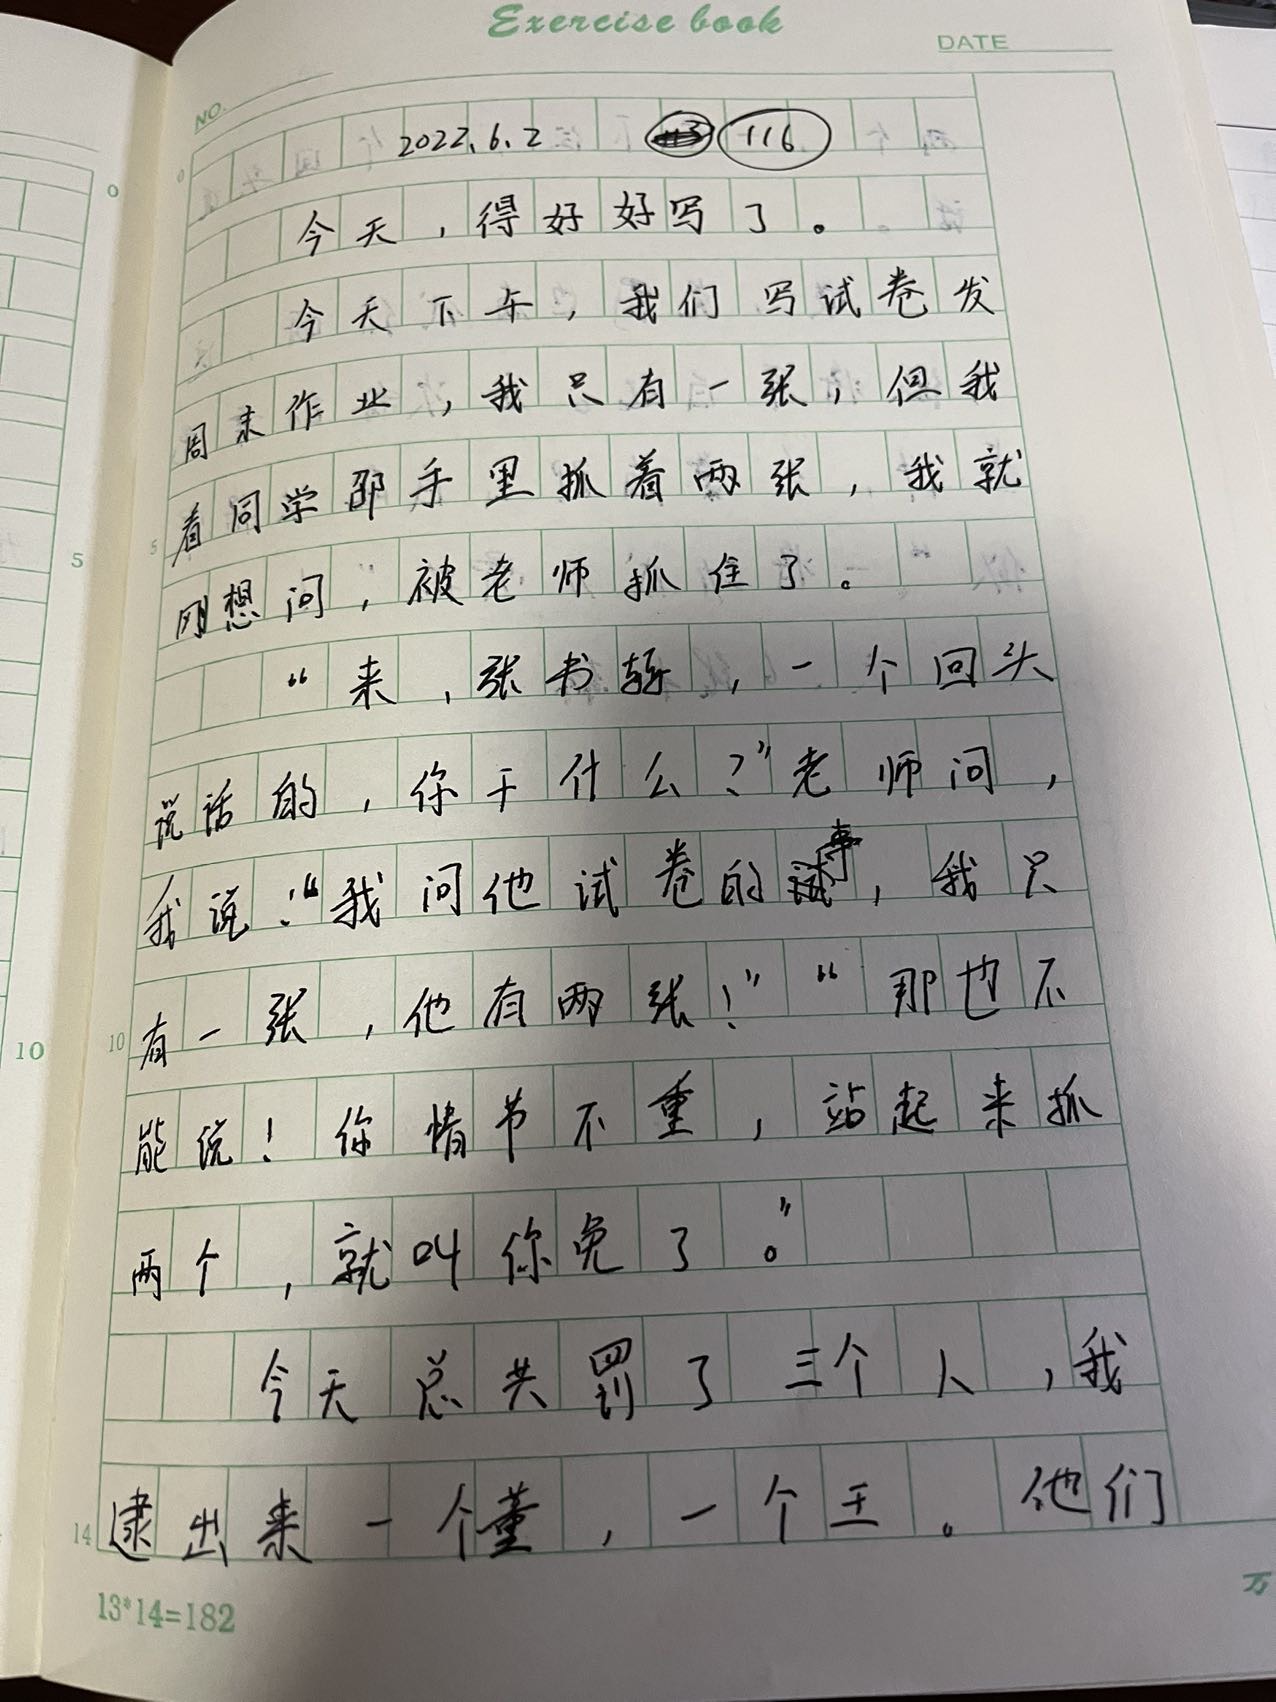 Exercise book
DATE
NO.
2022.6.2 116
今天，得好好写了。
今天下午，我们写试卷发
周末作业，我只有一张，但我
看同学邵手里抓着两张，我就
刚想问，被老师抓住了。
“来，张书轩，一个回头
说话的，你干什么？”老师问，
我说：“我问他试卷的事，我只
有一张，他有两张！”“那也不
能说！你情节不重，站起来抓
两个，就叫你免了。”
今天总共罚了三个人，我
逮出来一个董，一个王。他们
0
5
10
14
0
5
10
13*14=182
万